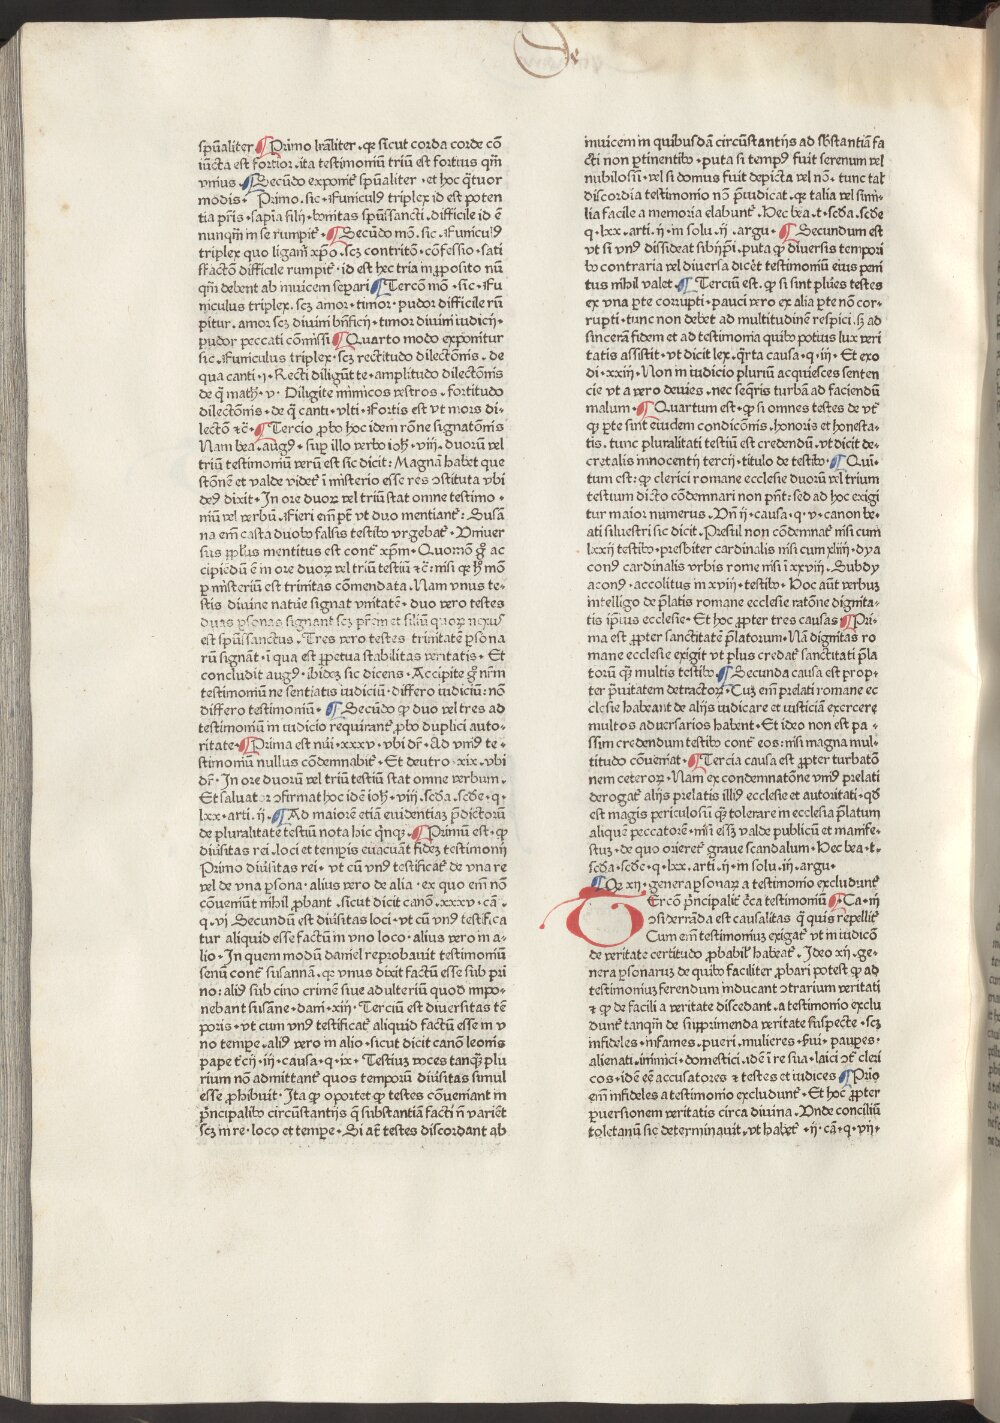 De
spũaliter ¶ Primo lr̃aliter . qr sicut corda corde cõ
iũcta est fortior . ita testimoniũ triũ est fortius qm̃
vnius . ¶ Secũdo exponit̃ spũaliter . et hoc q̃tuor
modis . Primo . sic . Funicul9 triplex id est poten
tia pr̃is . sapia filij . bonitas spũssancti . difficile id ẽ
nunq̃m in se rumpit̃ . ¶ Secũdo mõ . sic . Funicul9
triplex quo ligam̃ xp̃o . scz contritõ . cõfessio . sati
sfactõ difficile rumpit̃ . id est hec tria in p̱posito nũ
q̃m debent ab inuicem separi ¶ Tercõ mõ . sic . Fu
niculus triplex . scz amor . timor . pudor difficile rũ
pitur . amor scz diuini bñficij . timor diuini iudicij .
pudor peccati cõmissi ¶ Quarto modo exponitur
sic . Funiculus triplex . scz rectitudo dilectõnis . de
qua canti . i . Recti diligũt te . amplitudo dilectõnis
de q̃ math̃ . v . Diligite inimicos vestros . fortitudo
dilectõnis . de q̃ canti . vlti . Fortis est vt mors di-
lectõ ⁊c̃ . ¶ Tercio ꝓbo hoc idem rõne signatõnis
Nam bea . aug9 . sup̱ illo verbo ioh̃ . viij . duorũ vel
triũ testimoniũ verũ est sic dicit : Magnã habet que
stõnẽ et valde videt̃ ĩ misterio esse res ↄstituta vbi
de9 dixit . In ore duoꝝ vel triũ stat omne testimo .
niũ vel verbũ . Fieri em̃ pt̃ vt duo mentiant̃ : Susã
na em̃ casta duobo falsis testibo vrgebat̃ . Vniuer
sus ꝓp̱lus mentitus est cont̃ xp̃m . Quomõ g̃ ac
cipiẽdũ ẽ in ore duoꝝ vel triũ testiũ ⁊c̃ . nisi qr h9 mõ
p̱ misteriũ est trinitas cõmendata . Nam vnus te-
stis diuine natũe signat vnitatẽ . duo vero testes
duas p̱sonas signant scz pr̃em et filiũ quoꝝ nexus
est spũssanctus . Tres vero testes trinitatẽ p̱sona
rũ signãt . ĩ qua est ꝑpetua stabilitas veritatis . Et
concludit aug9 . ibidez sic dicens . Accipite g̃ nr̃m
testimoniũ ne sentiatis iudiciũ . differo iudiciũ : nõ
differo testimoniũ . ¶ Secũdo qꝫ duo vel tres ad
testimoniũ in iudicio requirant̃ ꝓbo duplici auto-
ritate . ¶ Prima est nũi . xxxv . vbi dr̃ . Ad vni9 te .
stimoniũ nullus cõdemnabit̃ . Et deutro . xix . vbi
dr̃ . In ore duorũ vel triũ testiũ stat omne verbum .
Et saluator ↄfirmat hoc idẽ ioh̃ . viij . scd̃a . scd̃e . q .
lxx . arti . ij . ¶ Ad maiorẽ etiã euidentiaz p̃dictorũ
de pluralitate testiũ nota hic q̃nqꝫ . ¶ Primũ est . qꝫ
diũsitas rei . loci et temp̱is euacuãt fidez testimonij
Primo diũsitas rei . vt cũ vn9 testificat̃ de vna re
vel de vna p̱sona . alius vero de alia . ex quo em̃ nõ
cõueniũt nihil ꝓbant . sicut dicit canõ . xxxv . cã .
q . vi Secundũ est diũsitas loci . vt cũ vn9 testifica
tur aliquid esse factũ in vno loco . alius vero in a-
lio . In quem modũ daniel reprobauit testimoniũ
senũ cont̃ susannã . qr vnus dixit factũ esse sub pri
no : ali9 sub cino crimẽ siue adulteriũ quod impo-
nebant susãne . dani . xiij . Terciũ est diuersitas tẽ
poris . vt cum vn9 testificat̃ aliquid factũ esse in v
no temp̱e . ali9 vero in alio . sicut dicit canõ leonis
pape t̃cij . iij . causa . q . ix . Testiuz voces tanq̃ꝫ plu
rium nõ admittant̃ quos temporũ diũsitas simul
esse ꝓhibuit . Ita qꝫ oportet qꝫ testes cõueniant in
p̃ncipalibo circũstantijs q̃ substantiã facti ñ variẽt
scz in re . loco et temp̱e . Si at̃ testes discordant ab
inuicem in quibusdã circũstantijs ad sb̃stantiã fa
cti non p̱tinentibo . puta si temp9 fuit serenum vel
nubilosũ . vel si domus fuit depicta vel nõ . tunc tal̃
discordia testimonio nõ p̃iudicat . qr talia vel simi-
lia facile a memoria elabunt̃ . Hec bea . t . scd̃a . scd̃e
q . lxx . arti . ij . in solu . ij . argu . ¶ Secundum est
vt si vn9 dissideat sibijp̃i . puta qꝫ diuersis tempori
bo contraria vel diuersa dicẽt testimoniũ eius peni
tus nihil valet . ¶ Terciũ est . qꝫ si sint plũes testes
ex vna p̱te corrupti . pauci vero ex alia p̱te nõ cor-
rupti . tunc non debet ad multitudinẽ respici . sꝫ ad
sincerã fidem et ad testimonia quibo potius lux veri
tatis assistit . vt dicit lex . q̃rta causa . q . iij . Et exo
di . xxiij . Non in iudicio pluriũ acquiesces senten
cie vt a vero deuies . nec seq̃ris turbã ad faciendũ
malum . ¶ Quartum est . qꝫ si omnes testes de vt̃
qꝫ p̱te sint eiusdem condicõnis . honoris et honesta-
tis . tunc pluralitati testiũ est credendũ . vt dicit de-
cretalis innocentij tercij . titulo de testibo . ¶ Quĩ-
tum est : qꝫ clerici romane ecclesie duorũ vel trium
testium dicto cõdemnari non pñt : sed ad hoc exigi
tur maior numerus . Vñ ij . causa . q . v . canon be .
ati siluestri sic dicit . Presul non cõdemnat̃ nisi cum
lxxij testibo . presbiter cardinalis nisi cum xliiij . dya
con9 cardinalis vrbis rome nisi ĩ xxviij . Subdy
acon9 . accolitus in xviij . testibo . Hoc aũt verbuz
intelligo de p̃latis romane ecclesie ratõne dignita-
tis ip̃ius ecclesie . Et hoc ꝓpter tres causas ¶ Pri-
ma est ꝓpter sanctitatem p̃latorum . Nã dignitas ro
mane ecclesie exigit vt plus credat̃ sanctitati p̃la
torũ q̃ꝫ multis testibo . ¶ Secunda causa est prop-
ter p̃uitatem detractoꝝ . Cuz em̃ prelati romane ec
clesie habeant de alijs iudicare et iusticiã exercere
multos aduersarios habent . Et ideo non est pa -
ssim credendum testibo cont̃ eos : nisi magna mul-
titudo cõueniat . ¶ Tercia causa est ꝓpter turbatõ
nem ceteroꝝ . Nam ex condemnatõne vni9 prelati
derogat̃ alijs prelatis illi9 ecclesie et autoritati . qd̃
est magis periculosũ q̃ꝫ tolerare in ecclesia p̃latum
aliquẽ peccatorẽ . nisi essꝫ valde publicũ et manife-
stuz . de quo oriret̃ graue scandalum . Hec bea . t .
scd̃a . scd̃e . q . lxx . arti . ij . in solu . iij . argu .
¶ Qr xij . genera p̱sonaꝝ a testimonio excludunt̃
Tercõ p̃ncipalit̃ c̃ca testimoniũ ¶ Ca . iij
ↄsiderãda est causalitas q̃ quis repellit̃
Cum em̃ testimoniuz exigat̃ vt in iudicõ
de veritate certitudo ꝓbabil̃ habeat̃ . Ideo xij . ge-
nera p̱sonaruz de quibo faciliter ꝓbari potest qꝫ ad
testimoniuz ferendum inducant ↄtrarium veritati
⁊ qꝫ de facili a veritate discedant . a testimonio exclu
dunt̃ tanq̃m de supprimenda veritate suspecte . scz
infideles . infames . pueri . mulieres . serui . paup̱es .
alienati . inimici . domestici . idẽ ĩ re sua . laici ↄt̃ cleri
cos . idẽ eẽ accusatores ⁊ testes et iudices ¶ Prio
em̃ infideles a testimonio excludunt̃ . Et hoc ꝓpter
p̱uersionem veritatis circa diuina . Vnde conciliũ
toletanũ sic determinauit . vt habet̃ . ij . cã . q . vij .